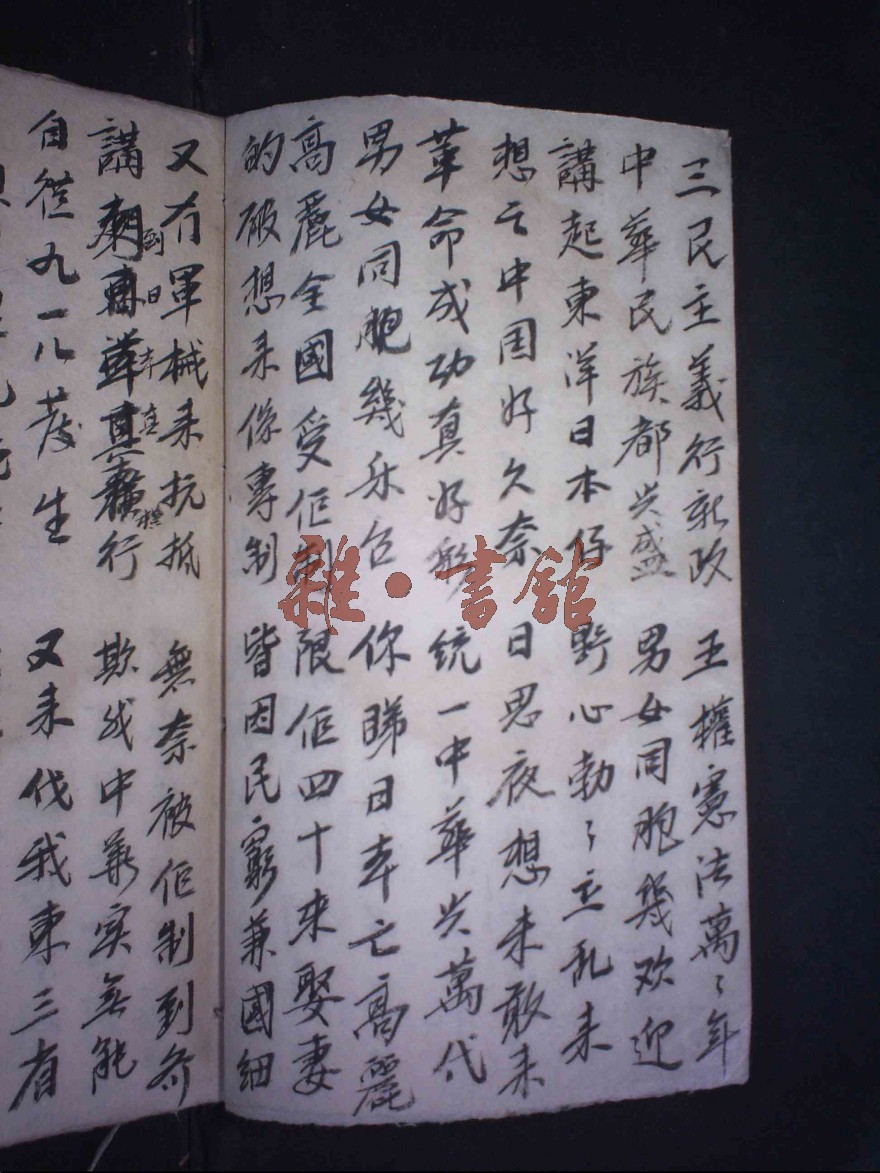 三民主義行新政 五權憲法萬〻年
中華民族都兴盛 男女同胞幾欢迎
講起東洋日本仔 野心勃〻立乱来
想亡中国好久奈 日思夜想未敢来
革命成功真好彩 統一中華兴萬代
男女同胞幾乐 你睇日本亡高麗
高麗全國受佢制 限佢四十来娶妻
的破想来係專制 皆因民窮兼國細
又冇軍械来抗抵 無奈被佢制到
講到日本真横行 欺我中華实無能
自從九一八发生 又来伐我東三省
雜·書館